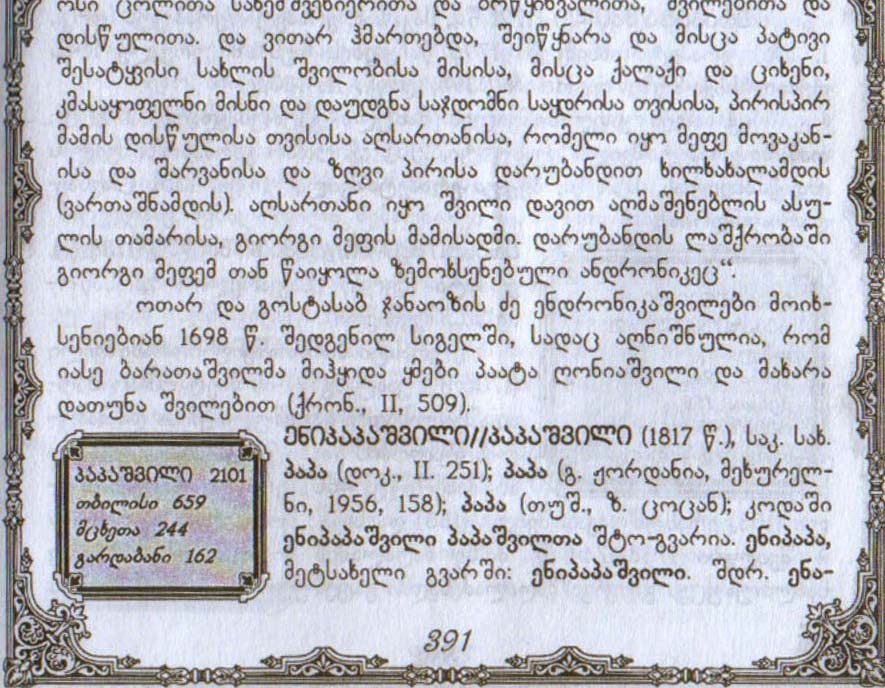 ოსი ცოლითა სახემშვენიერითა და მოწყინვალითა, შვილებითა და
დისწულითა. და ვითარ ჰმართებდა, შეიწყნარა და მისცა პატივი
შესატყვისი სახლის შვილობისა მისისა, მისცა ქალაქი და ციხენი,
კმასაყოფელნი მისნი და დაუდგნა საჯდომნი საყდრისა თვისისა, პირისპირ
მამის დისწულისა თვისისა აღსართანისა, რომელი იყო მეფე მოვაკან-
ისა და შარვანისა და ზღვი პირისა დარუბანდით ხილხახალამდის
(ვართაშნამდის). აღსართანი იყო შვილი დავით აღმაშენებლის ასუ-
ლის თამარისა, გიორგი მეფის მამისადმი. დარუბანდის ლაშქრობაში
გიორგი მეფემ თან წაიყოლა ზემოხსენებული ანდრონიკეც“.
ოთარ და გოსტასაბ ჯანაოზის ძე ენდრონიკაშვილები მოიხ-
სენიებიან 1698 წ. შედგენილ სიგელში, სადაც აღნიშნულია, რომ
იასე ბარათაშვილმა მიჰყიდა ყმები პაატა ღონიაშვილი და მახარა
დათუნა შვილებით (ქრონ., II, 509).
ენიპაპაშვილი//პაპაშვილი (1817 წ.), საკ. სახ.
პაპა (დოკ., II. 251); პაპა (გ. ჟორდანია, მეხურელ-
ნი, 1956, 158); პაპა (თუშ., ზ. ცოცან); კოდაში
ენიპაპაშვილი პაპაშვილთა შტო-გვარია. ენიპაპა,
მეტსახელი გვარში: ენიპაპაშვილი. შდრ. ენა-
პაპაშვილი 2101
თბილისი 659
მცხეთა 244
გარდაბანი 162
391